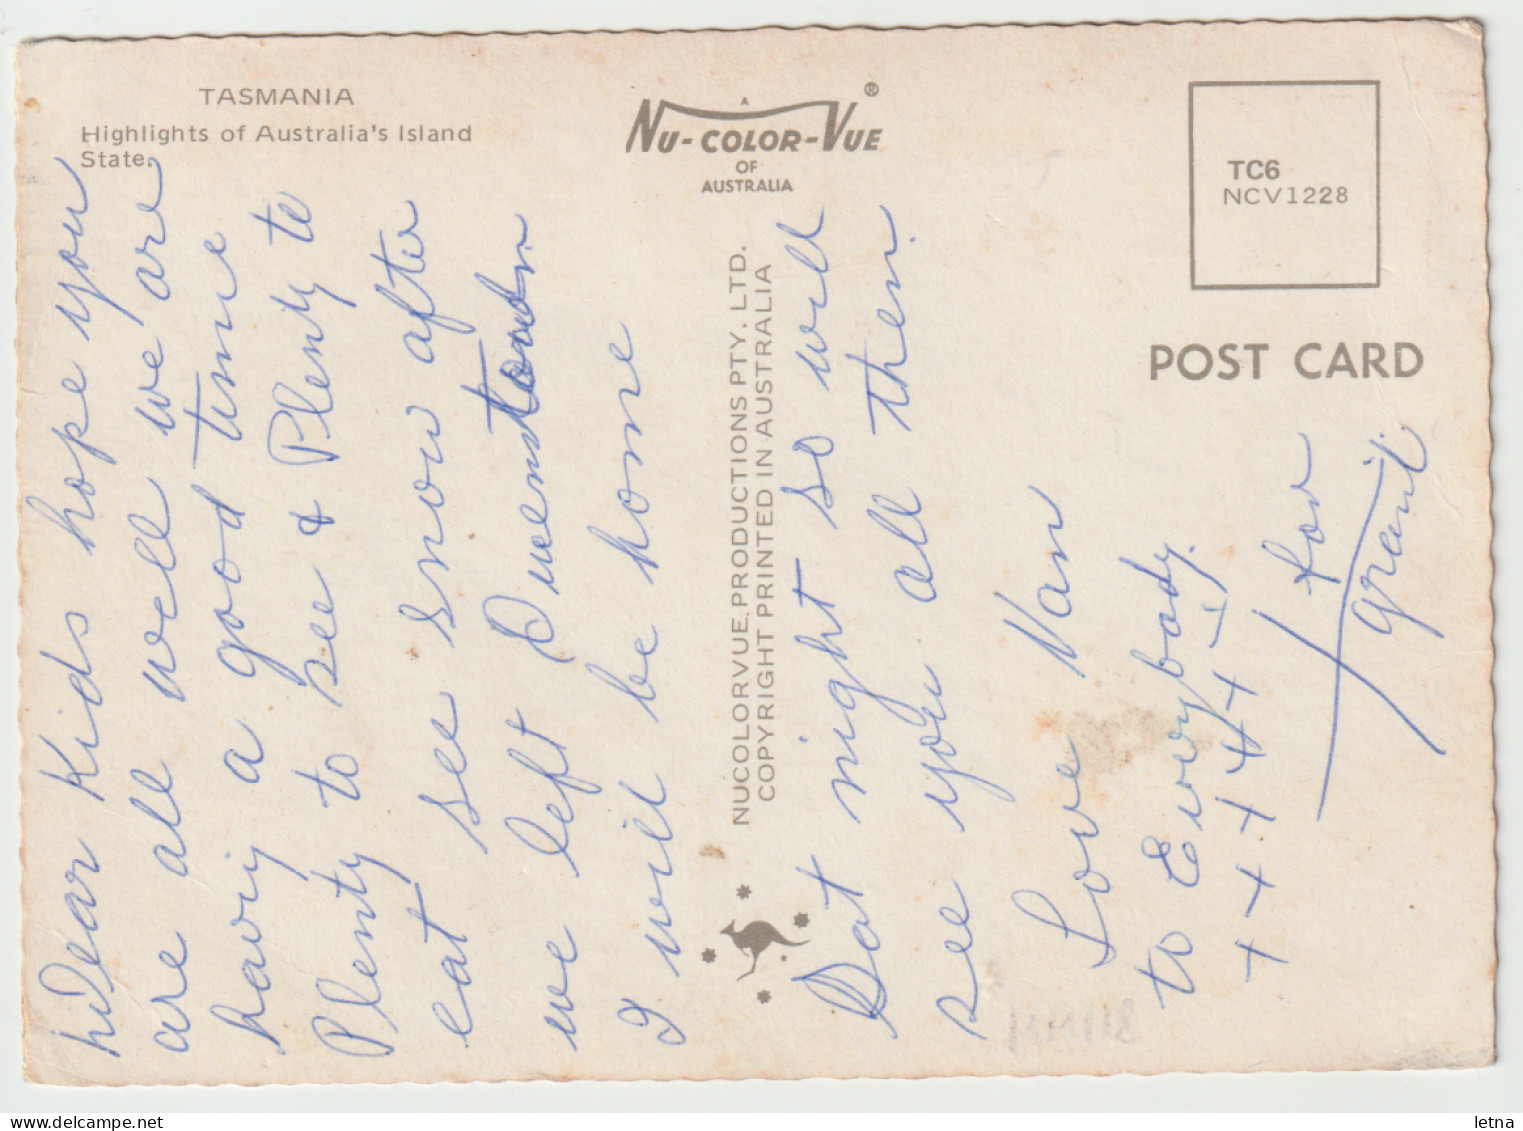 TASMANIA
Highlights of Australia's Island
State.
A
NU-COLOR-VUE ®
OF
AUSTRALIA
TC6
NCV1228
POST CARD
NUCOLORVUE PRODUCTIONS PTY. LTD.
COPYRIGHT PRINTED IN AUSTRALIA
Dear Kids hope you
are all well we are
havig a good time
Plenty to see & Plenty to
eat see snow after
we left Queenstown
I will be home
Sat night so will
see you all then.
Love Nan
to Everybody.
x x x x x x x / for
Grant
delcampe.net
letna